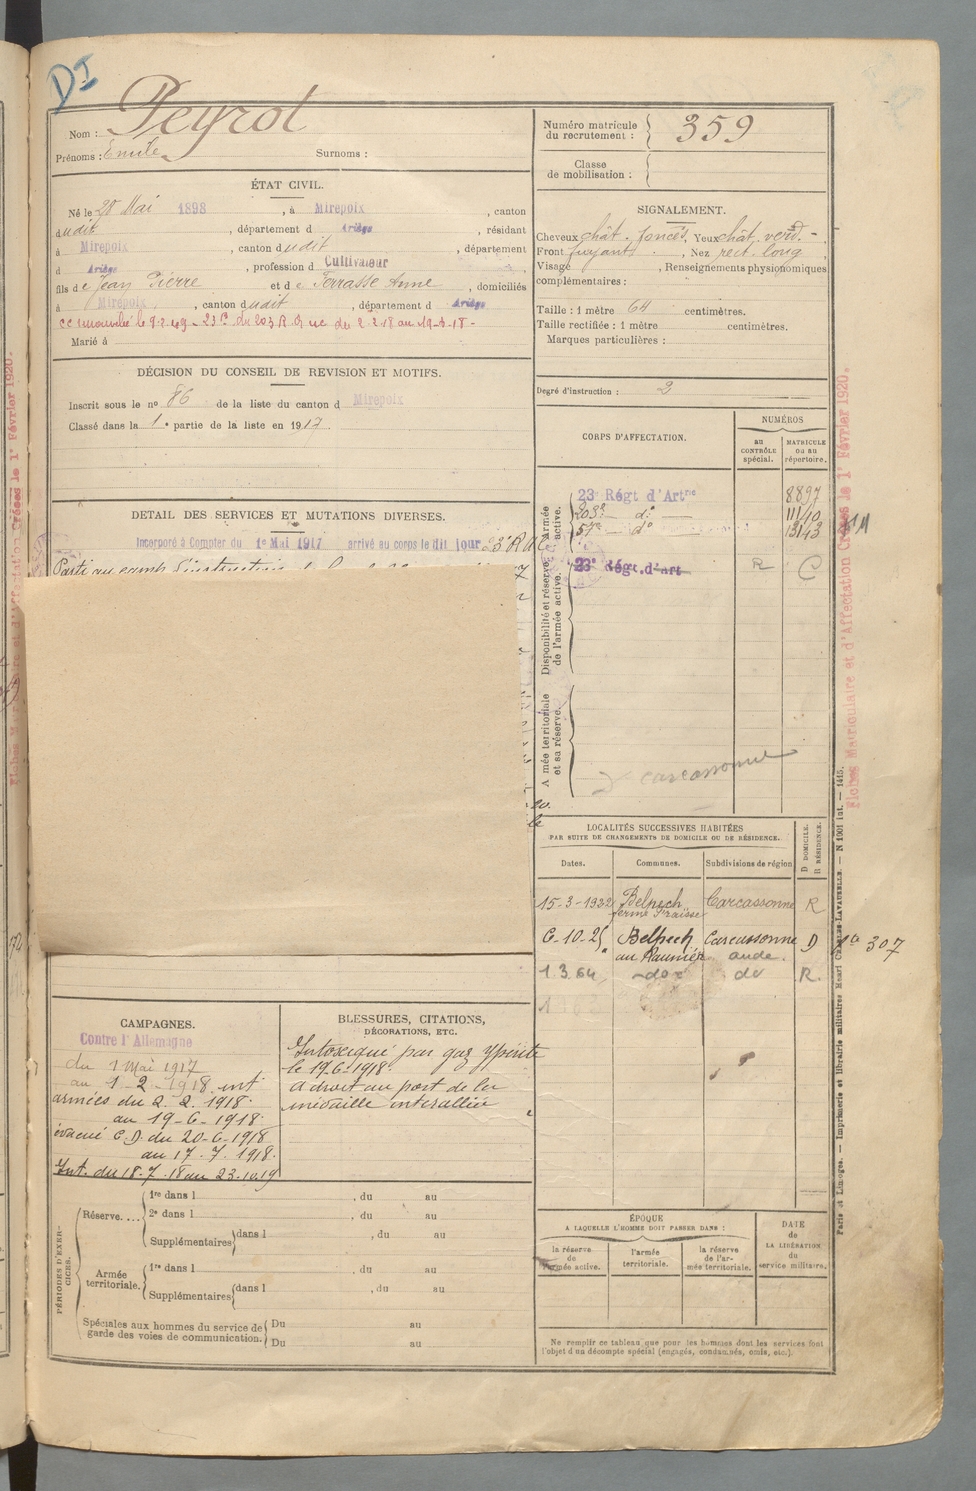 DI
Nom : Peyrot
Prénoms : Emile Surnoms :
ÉTAT CIVIL.
Né le 20 Mai 1898, à Mirepoix, canton
dudit, département d Ariège, résidant
à Mirepoix, canton dudit, département
d Ariège, profession d Cultivateur
fils de Jean Pierre et de Terrasse Anne, domiciliés
à Mirepoix, canton dudit, département d Ariège
Marié à
DÉCISION DU CONSEIL DE REVISION ET MOTIFS.
Inscrit sous le no 86 de la liste du canton d Mirepoix
Classé dans la 1e partie de la liste en 1917.
DETAIL DES SERVICES ET MUTATIONS DIVERSES.
Incorporé à Compter du 1er Mai 1917 arrivé au corps le dit jour 23e R.A.C
Parti au camp d'instruction
CAMPAGNES.
Contre l'Allemagne
du 1 Mai 1917
au 1-2-1918 int
armées du 2.2.1918
au 19-6-1918
évacué C.D. du 20-6-1918
au 17.7.1918.
Int. du 18.7.18 au 23.10.19
BLESSURES, CITATIONS,
DÉCORATIONS, ETC.
Intoxiqué par gaz ypérite
le 19-6-1918.
a droit au port de la
médaille interalliée
PÉRIODES D'EXERCICES.
Réserve....
1re dans l , du au
2e dans l , du au
Supplémentaires dans l , du au
Armée territoriale.
1re dans l , du au
Supplémentaires dans l , du au
Spéciales aux hommes du service de garde des voies de communication.
Du au
Du au
Numéro matricule du recrutement : 359
Classe de mobilisation :
SIGNALEMENT.
Cheveux chât. foncés, Yeux chât. verd.
Front fuyant, Nez rect. long
Visage , Renseignements physionomiques
complémentaires :
Taille : 1 mètre 64 centimètres.
Taille rectifiée : 1 mètre centimètres.
Marques particulières :
Degré d'instruction : 2
CORPS D'AFFECTATION.
NUMÉROS
au CONTRÔLE spécial.
MATRICULE ou au répertoire.
Disponibilité et réserve de l'armée active.
armée active.
23e Régt d'Artrie 8897
203e do 11110
57e do 13143
23e Régt. d'art R C
A mée territoriale et sa réserve.
carcassonne
LOCALITÉS SUCCESSIVES HABITÉES
PAR SUITE DE CHANGEMENTS DE DOMICILE OU DE RÉSIDENCE.
Dates. Communes. Subdivisions de région
D DOMICILE. R RÉSIDENCE.
15-3-1932 Belpech Carcassonne R
ferme
6-10-25 Belpech Carcassonne D
au aude.
1.3.64 do do R.
307
ÉPOQUE
A LAQUELLE L'HOMME DOIT PASSER DANS :
la réserve de l'armée active.
l'armée territoriale.
la réserve de l'armée territoriale.
DATE de LA LIBÉRATION du service militaire.
Ne remplir ce tableau que pour les hommes dont les services font
l'objet d'un décompte spécial (engagés, condamnés, omis, etc.).
Fiches Matriculaire et d'Affectation Créées le 1er Février 1920.
Paris et Limoges. — Imprimerie et librairie militaires Henri CHARLES-LAVAUZELLE. — N 1001 int. — 1415.